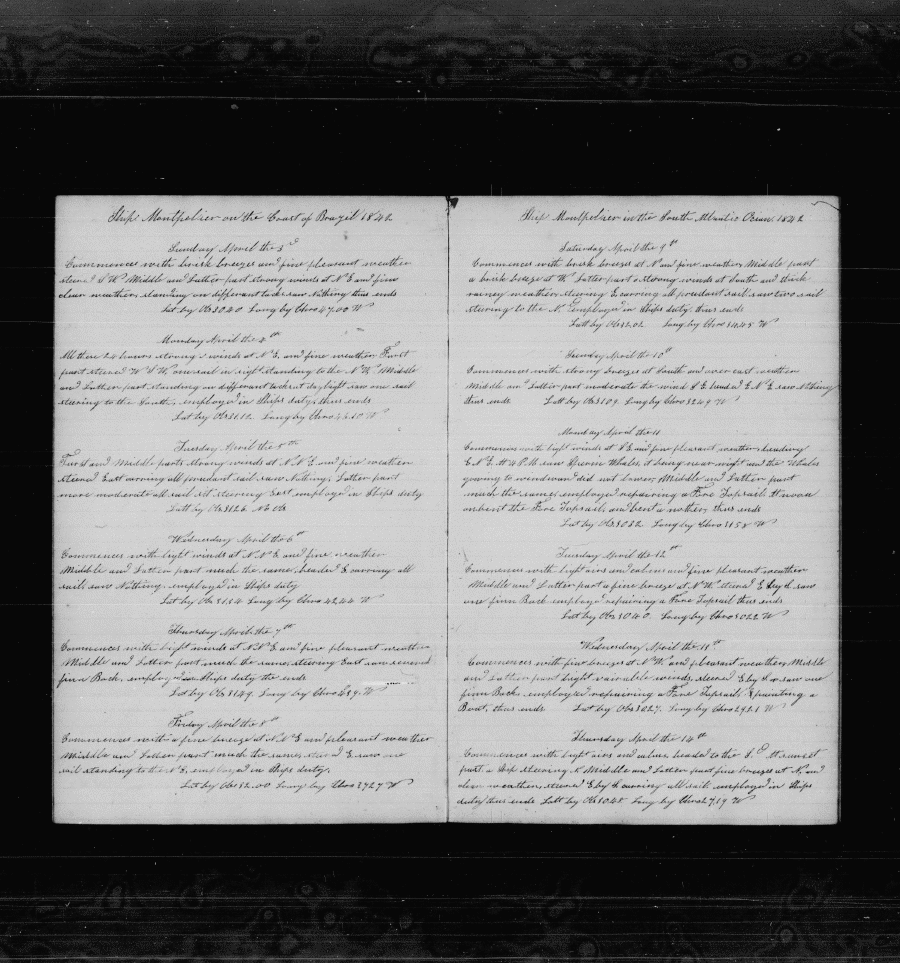 Ship Montpelier on the Coast of Brazil 1842
Sunday April the 3d
Commences with brisk breezes and fine pleasant weather
steered S W Middle and Latter part strong winds at N E and fine
clear weather, standing on differant tacks saw Nothing thus ends
Lat by Obs 30.40 Long by Chro 47.00 W
Monday April the 4th
All these 24 hours strong winds at N E, and fine weather First
part steered W S W one sail in sight standing to the N W Middle
and Latter part standing on differant tacks at daylight saw one sail
steering to the South, employed in Ships duty, thus ends
Lat by Obs 31.12 Long by Chro 46.10 W
Tuesday April the 5th
First and Middle parts strong winds at N.N.E. and fine weather
steered East carrying all prudant sail saw Nothing, Latter part
more moderate all sail set steering East employed in Ships duty
Latt by Obs 31.26 No Obs
Wednesday April the 6th
Commences with light winds at N.N.E. and fine weather
Middle and Latter part much the same, headed E carrying all
sail saw Nothing, employed in Ships duty
Lat by Obs 31.54 Long by Chro 42.44 W
Thursday April the 7th
Commences with light winds at N.N.E. and fine pleasant weather
Middle and Latter part much the same, steering East saw several
finn Back, employed in Ships duty the ends
Lat by Obs 31.49 Long by Chro W
Friday April the 8th
Commences with a fine breeze at N.N.E. and pleasant weather
Middle and Latter part much the same, steered E saw one
sail standing to the N E, employed in Ships duty,
Lat by Obs 32.00 Long by Chro 37.27 W
Ship Montpelier in the South Atlantic Ocean, 1842
Saturday April the 9th
Commences with brisk breezes at N and fine weather, Middle part
a brisk breeze at W. Latter part strong winds at South and thick
rainey weather, steering E carring all prudant sail saw two sail
steering to the N. Employed in Ships duty, thus ends
Latt by Obs 32.02 Long by Chro 34.48 W
Sunday April the 10th
Commences with strong breezes at South and over cast weather
Middle and Latter part moderate the wind S E headed E N E saw Nothing
thus ends Lat by Obs 31.09. Long by Chro 32.49 W
Monday April the 11
Commences with light winds at S E, and fine pleasant weather, heading
E N E. At 4 P.M. saw Sperm Whales, it being near night and the Whales
gowing to windward did not lower, Middle and Latter part
much the same, employed repairing a Fore Topsail. At noon
unbent the Fore Topsail, and bent a nother, thus ends
Lat by Obs 30.32 Long by Chro 31.58 W
Tuesday April the 12th
Commences with light airs and calms and fine pleasant weather
Middle and Latter part a fine breeze at N W, steered E by S. saw
one finn Back employed repairing a Fore Topsail thus ends
Lat by Obs 30.40. Long by Chro 30.22 W
Wednesday April the 13th
Commences with fine breezes at N W. and pleasant weather, Middle
and Latter part Light vairable winds, steered E by S saw one
finn Back, employed repairing a Fore Topsail, & painting a
Boat, thus ends Lat by Obs 30.27. Long by Chro 29.21 W
Thursday April the 14th
Commences with light airs and calms, headed to the S. E At sunset
past a Ship steering Middle and Latter part fine breezes at N, and
clear weather, steered E by S carring all sail employed in Ships
duty, thus ends Latt by Obs 30.48 Long by Chro 27.19 W